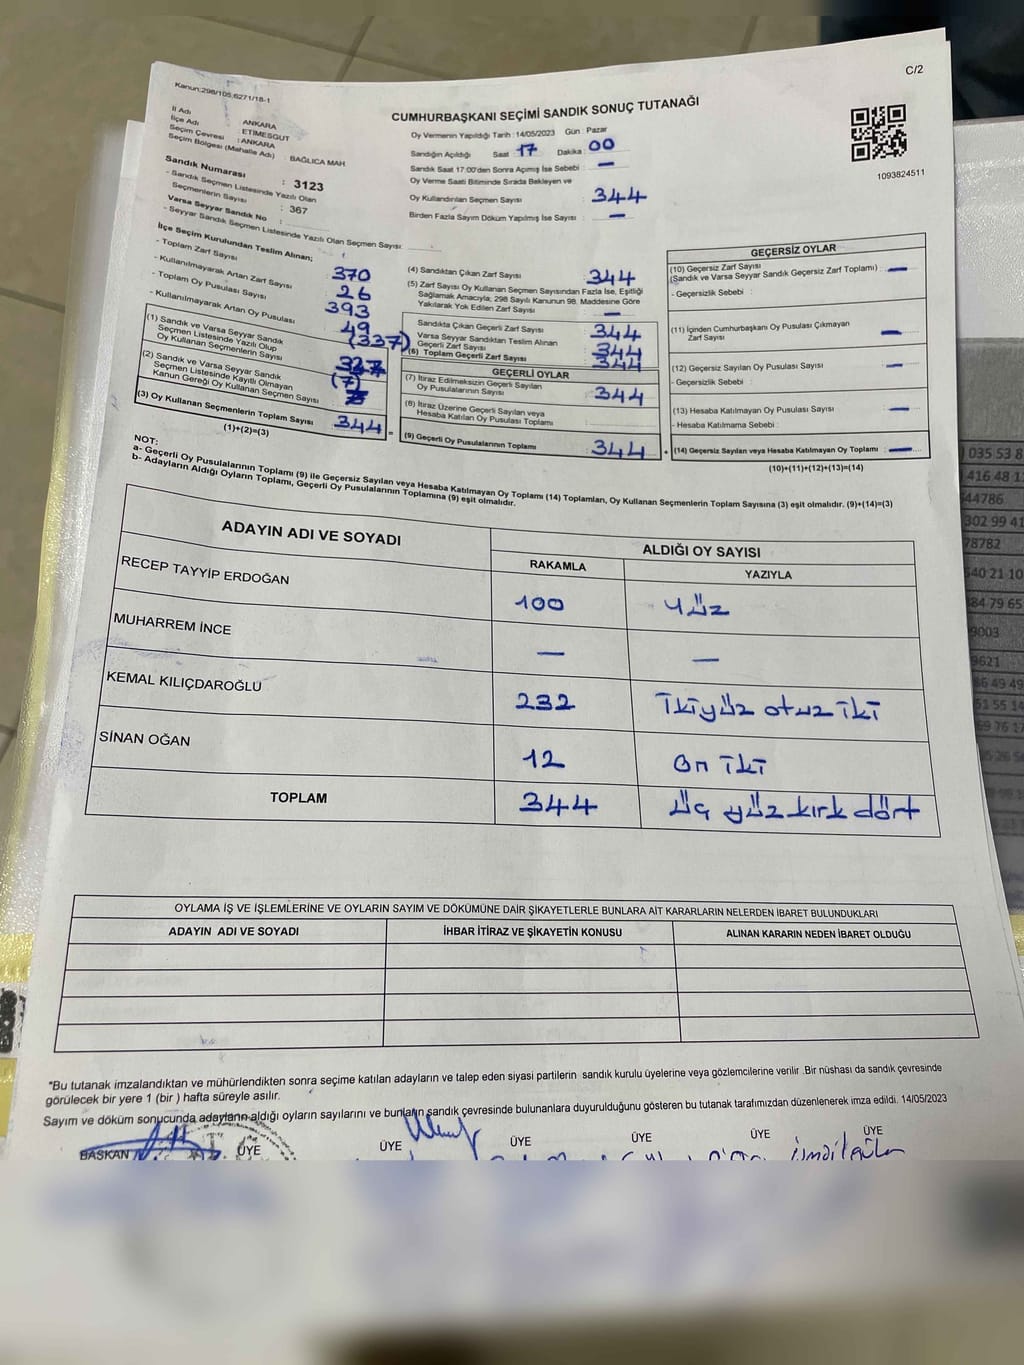 C/2
Kanun:298/105,6271/18-1
CUMHURBAŞKANI SEÇİMİ SANDIK SONUÇ TUTANAĞI
İl Adı : ANKARA
İlçe Adı : ETİMESGUT
Seçim Çevresi : ANKARA
Seçim Bölgesi (Mahalle Adı) : BAĞLICA MAH.
Sandık Numarası : 3123
- Sandık Seçmen Listesinde Yazılı Olan
Seçmenlerin Sayısı : 367
Varsa Seyyar Sandık No :
- Seyyar Sandık Seçmen Listesinde Yazılı Olan Seçmen Sayısı:
Oy Vermenin Yapıldığı Tarih : 14/05/2023 Gün : Pazar
Sandığın Açıldığı Saat 17 Dakika : 00
Sandık Saat 17:00'den Sonra Açımış İse Sebebi : —
Oy Verme Saati Bitiminde Sırada Bekleyen ve
Oy Kullandırılan Seçmen Sayısı : 344
Birden Fazla Sayım Döküm Yapılmış İse Sayısı : —
1093824511
İlçe Seçim Kurulundan Teslim Alınan;
- Toplam Zarf Sayısı 370
- Kullanılmayarak Artan Zarf Sayısı 26
- Toplam Oy Pusulası Sayısı 393
- Kullanılmayarak Artan Oy Pusulası 49
(1) Sandık ve Varsa Seyyar Sandık
Seçmen Listesinde Yazılı Olup
Oy Kullanan Seçmenlerin Sayısı (337)
(2) Sandık ve Varsa Seyyar Sandık
Seçmen Listesinde Kayıtlı Olmayan
Kanun Gereği Oy Kullanan Seçmen Sayısı (7)
(3) Oy Kullanan Seçmenlerin Toplam Sayısı 344 =
(1)+(2)=(3)
(4) Sandıktan Çıkan Zarf Sayısı : 344
(5) Zarf Sayısı Oy Kullanan Seçmen Sayısından Fazla İse, Eşitliği
Sağlamak Amacıyla; 298 Sayılı Kanunun 98. Maddesine Göre
Yakılarak Yok Edilen Zarf Sayısı : —
Sandıkta Çıkan Geçerli Zarf Sayısı : 344
Varsa Seyyar Sandıktan Teslim Alınan
Geçerli Zarf Sayısı 344
(6) Toplam Geçerli Zarf Sayısı 344
GEÇERLİ OYLAR
(7) İtiraz Edilmeksizin Geçerli Sayılan
Oy Pusulalarının Sayısı : 344
(8) İtiraz Üzerine Geçerli Sayılan veya
Hesaba Katılan Oy Pusulası Toplamı :
(9) Geçerli Oy Pusulalarının Toplamı : 344 +
GEÇERSİZ OYLAR
(10) Geçersiz Zarf Sayısı
(Sandık ve Varsa Seyyar Sandık Geçersiz Zarf Toplamı) : —
- Geçersizlik Sebebi :
(11) İçinden Cumhurbaşkanı Oy Pusulası Çıkmayan
Zarf Sayısı : —
(12) Geçersiz Sayılan Oy Pusulası Sayısı : —
- Geçersizlik Sebebi :
(13) Hesaba Katılmayan Oy Pusulası Sayısı : —
- Hesaba Katılmama Sebebi :
(14) Geçersiz Sayılan veya Hesaba Katılmayan Oy Toplamı : —
(10)+(11)+(12)+(13)=(14)
NOT:
a- Geçerli Oy Pusulalarının Toplamı (9) ile Geçersiz Sayılan veya Hesaba Katılmayan Oy Toplamı (14) Toplamları, Oy Kullanan Seçmenlerin Toplam Sayısına (3) eşit olmalıdır. (9)+(14)=(3)
b- Adayların Aldığı Oyların Toplamı, Geçerli Oy Pusulalarının Toplamına (9) eşit olmalıdır.
ADAYIN ADI VE SOYADI ALDIĞI OY SAYISI
RAKAMLA YAZIYLA
RECEP TAYYİP ERDOĞAN 100 yüz
MUHARREM İNCE — —
KEMAL KILIÇDAROĞLU 232 ikiyüz otuz iki
SİNAN OĞAN 12 on iki
TOPLAM 344 üç yüz kırk dört
OYLAMA İŞ VE İŞLEMLERİNE VE OYLARIN SAYIM VE DÖKÜMÜNE DAİR ŞİKAYETLERLE BUNLARA AİT KARARLARIN NELERDEN İBARET BULUNDUKLARI
ADAYIN ADI VE SOYADI İHBAR İTİRAZ VE ŞİKAYETİN KONUSU ALINAN KARARIN NEDEN İBARET OLDUĞU
*Bu tutanak imzalandıktan ve mühürlendikten sonra seçime katılan adayların ve talep eden siyasi partilerin sandık kurulu üyelerine veya gözlemcilerine verilir .Bir nüshası da sandık çevresinde
görülecek bir yere 1 (bir ) hafta süreyle asılır.
Sayım ve döküm sonucunda adayların aldığı oyların sayılarını ve bunların sandık çevresinde bulunanlara duyurulduğunu gösteren bu tutanak tarafımızdan düzenlenerek imza edildi. 14/05/2023
BAŞKAN ÜYE ÜYE ÜYE ÜYE ÜYE ÜYE
035 53 8
416 48 1
44786
302 99 41
78782
540 21 10
84 79 65
9003
9621